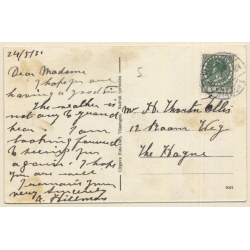 24/5/31
Dear Madame
I hope you are
having a good time
The weather is
not any to grand
here. I am
looking forward
to seeing you
again. I hope
you are well
I remain yours
very sincerely
A. Hillman
5
Mr. H. Thornton Ellis
12 Room Weg
The Hague